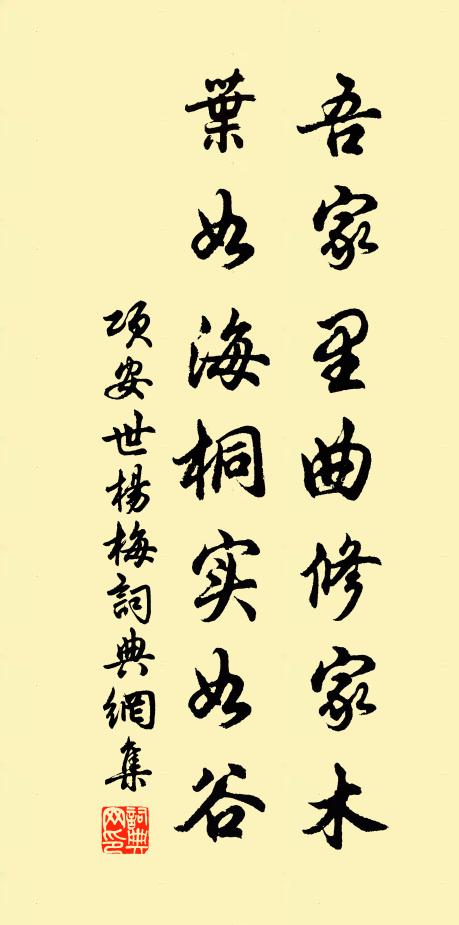 吾家里曲修家木
葉如海桐实如谷
项安世楊梅詞典網集
詞典网印